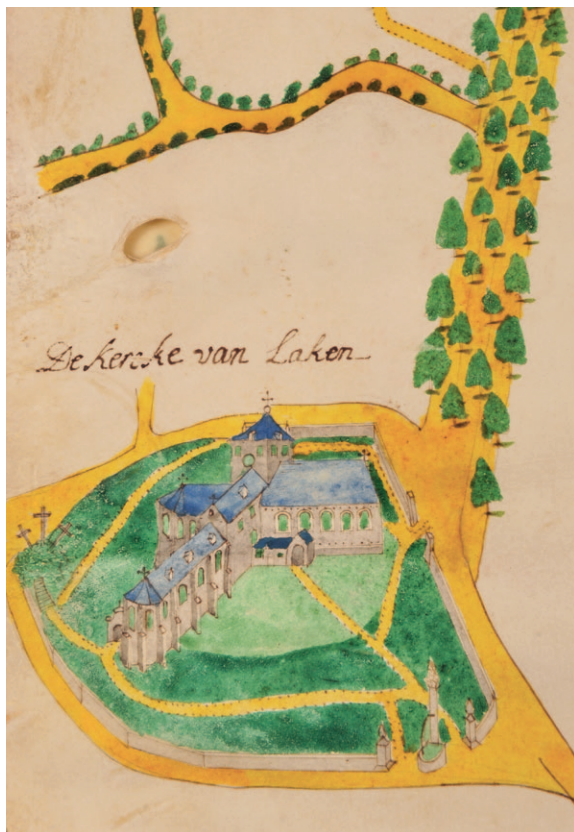 De kercke van Laken